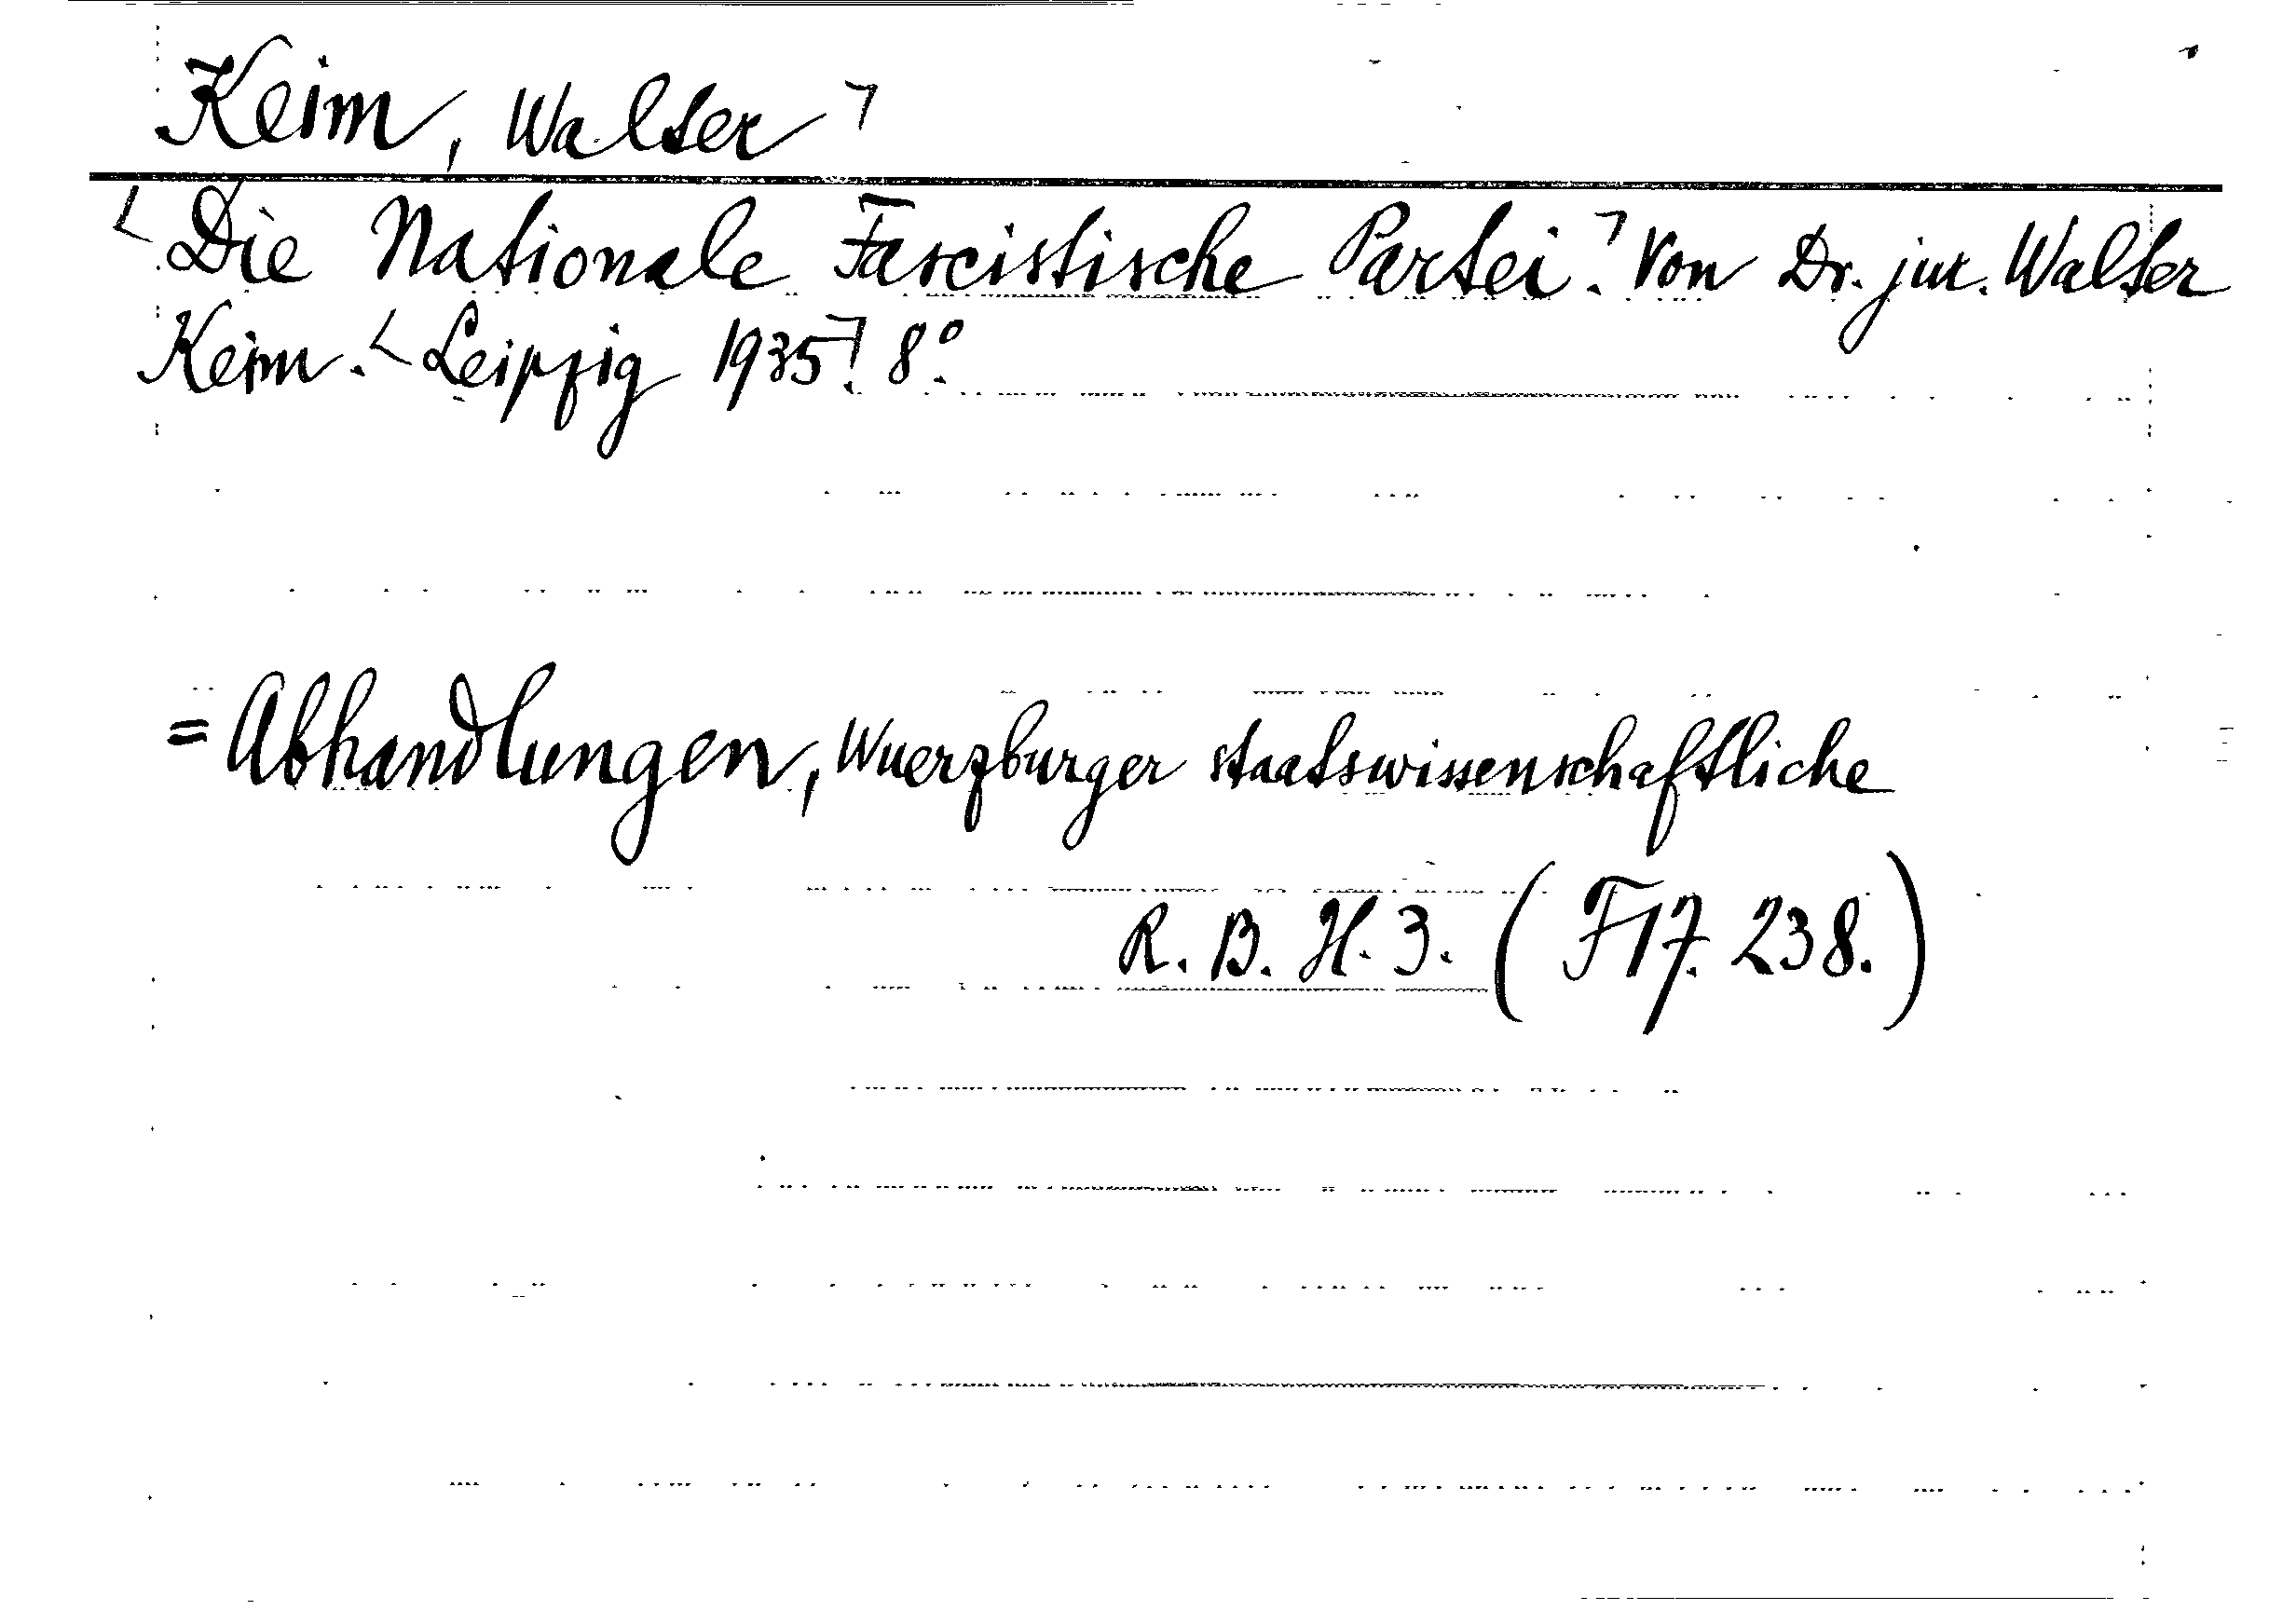 Keim, Walter ⌉
⌊ Die Nationale Fascistische Partei ⌉. Von Dr. jur. Walter
Keim. ⌊ Leipzig 1935 ⌉. 8°.
= Abhandlungen, Wuerzburger staatswissenschaftliche
R. B. H. 3. (F17. 238.)